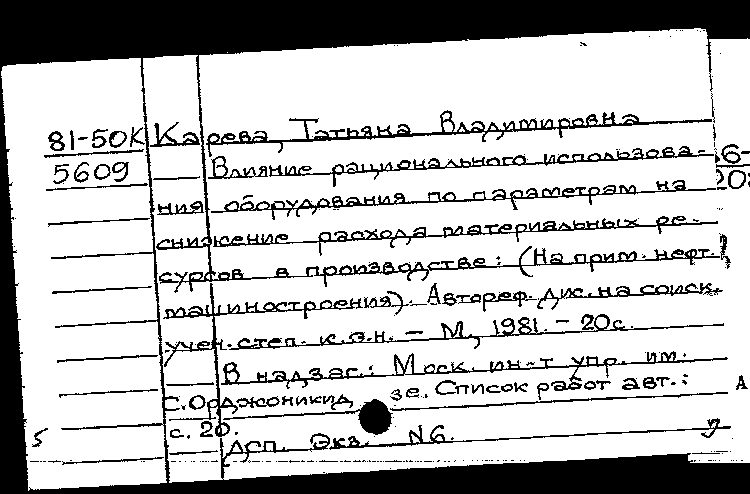 81-50К Карева, Татьяна Владимировна
5609 Влияние рационального использова-
ния оборудования по параметрам на
снижение расхода материальных ре-
сурсов в производстве: (На прим. нефт.
машиностроения). Автореф. дис. на соиск.
учен. степ. к.э.н. - М., 1981. - 20с.
В надзаг.: Моск. ин-т упр. им.
С. Орджоникидзе. Список работ авт.:
с. 20.
ДСП. Экз. N6.
5